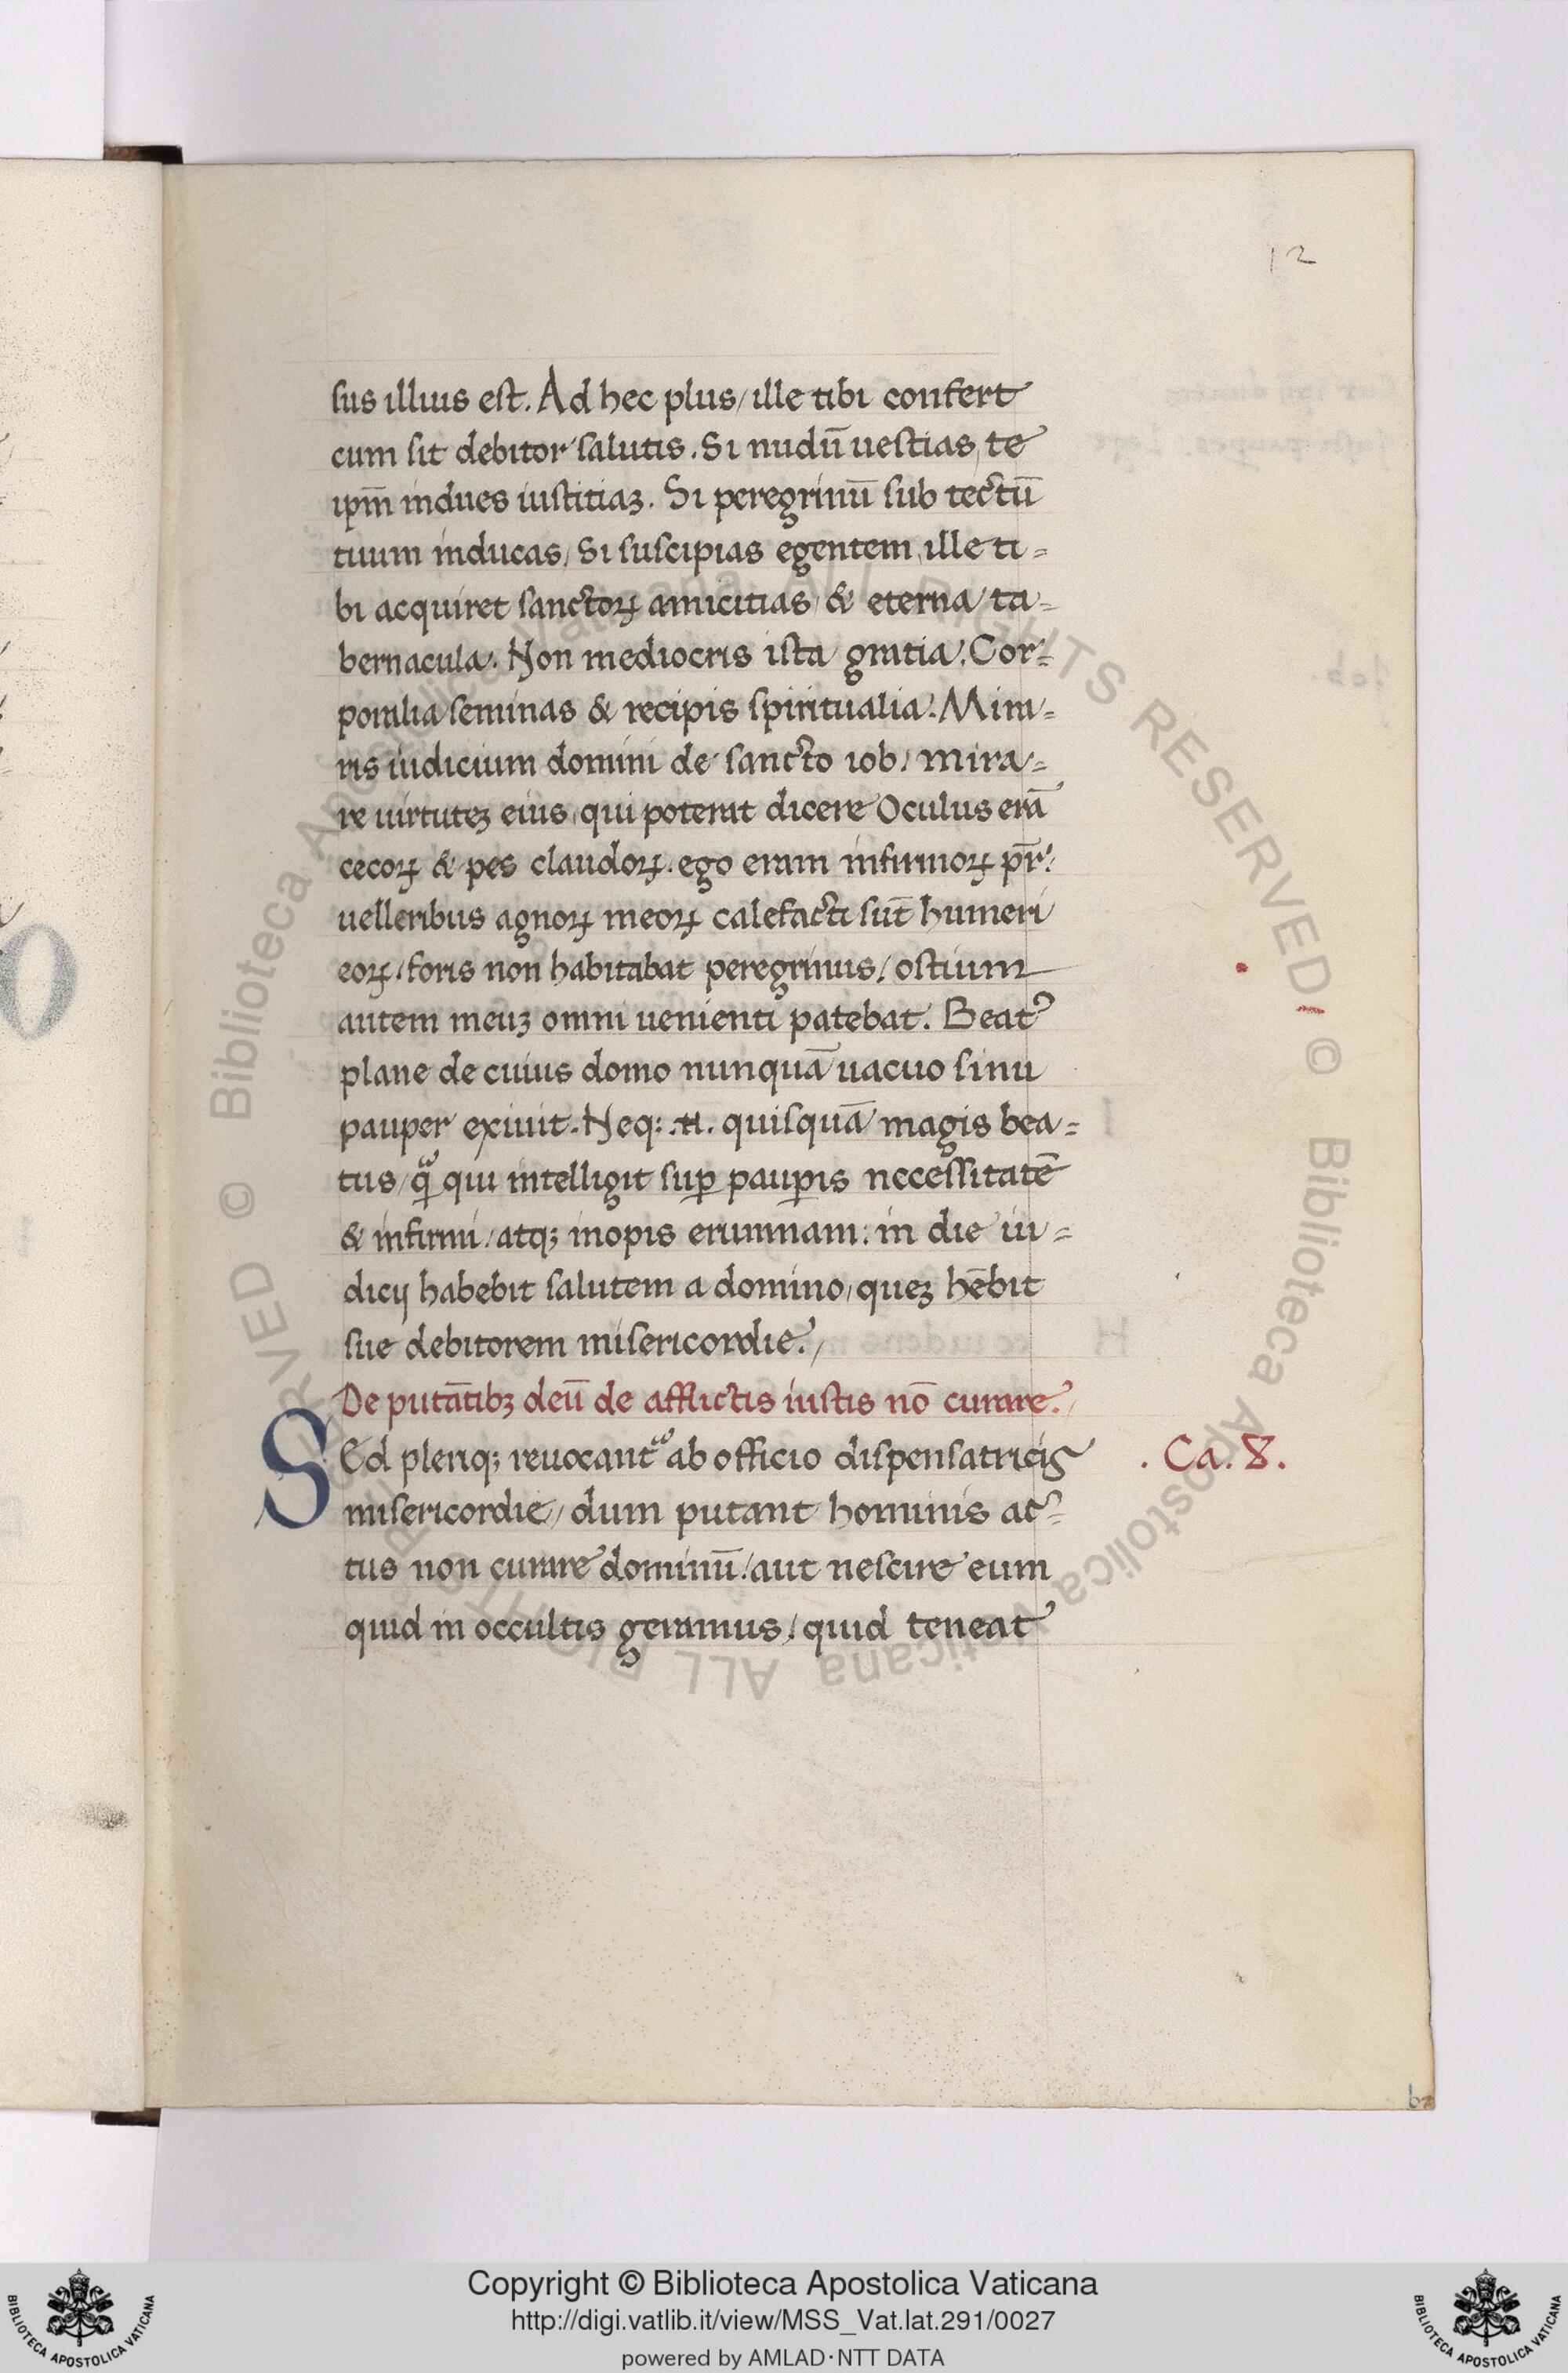 12
sus illius est. Ad hec plus/ ille tibi confert
cum sit debitor salutis. Si nudū uestias, te
ipm̄ indues iustitiaꝫ. Si peregrinū sub tectū
tuum inducas/ Si suscipias egentem, ille ti=
bi acquiret sanctoꝝ amicitias/ & eterna ta=
bernacula. Non mediocris ista gratia. Cor=
poralia seminas & recipis spiritualia. Mira=
ris iudicium domini de sancto iob/ mira=
re uirtuteꝫ eius, qui poterat dicere Oculus erā
cecoꝝ & pes claudoꝝ. ego eram infirmoꝝ pr̄.
uelleribus agnoꝝ meoꝝ calefacti sūt humeri
eoꝝ/ foris non habitabat peregrinus/ ostium
autem meuꝫ omni uenienti patebat. Beatꝰ
plane de cuius domo nunquā uacuo sinu
pauper exiuit. Neq: .n. quisquā magis bea=
tus/ qᷓ qui intelligit suꝑ pauꝑis necessitatē
& infirmi/ atqꝫ inopis erumnam: in die iu=
dicij habebit salutem a domino, queꝫ hēbit
sue debitorem misericordie./
De putātibꝫ deū de afflictis iustis nō curare./
SEd pleriqꝫ reuocantᷣ ab officio dispensatricis
. Ca. 8.
misericordie/ dum putant hominis ac=
tus non curare dominū/ aut nescire eum
quid in occultis geramus/ quid teneat
Copyright © Biblioteca Apostolica Vaticana
http://digi.vatlib.it/view/MSS_Vat.lat.291/0027
powered by AMLAD·NTT DATA
BIBLIOTECA APOSTOLICA VATICANA
BIBLIOTECA APOSTOLICA VATICANA
© Biblioteca Apostolica Vaticana ALL RIGHTS RESERVED © Biblioteca Apostolica Vaticana ALL RIGHTS RESERVED